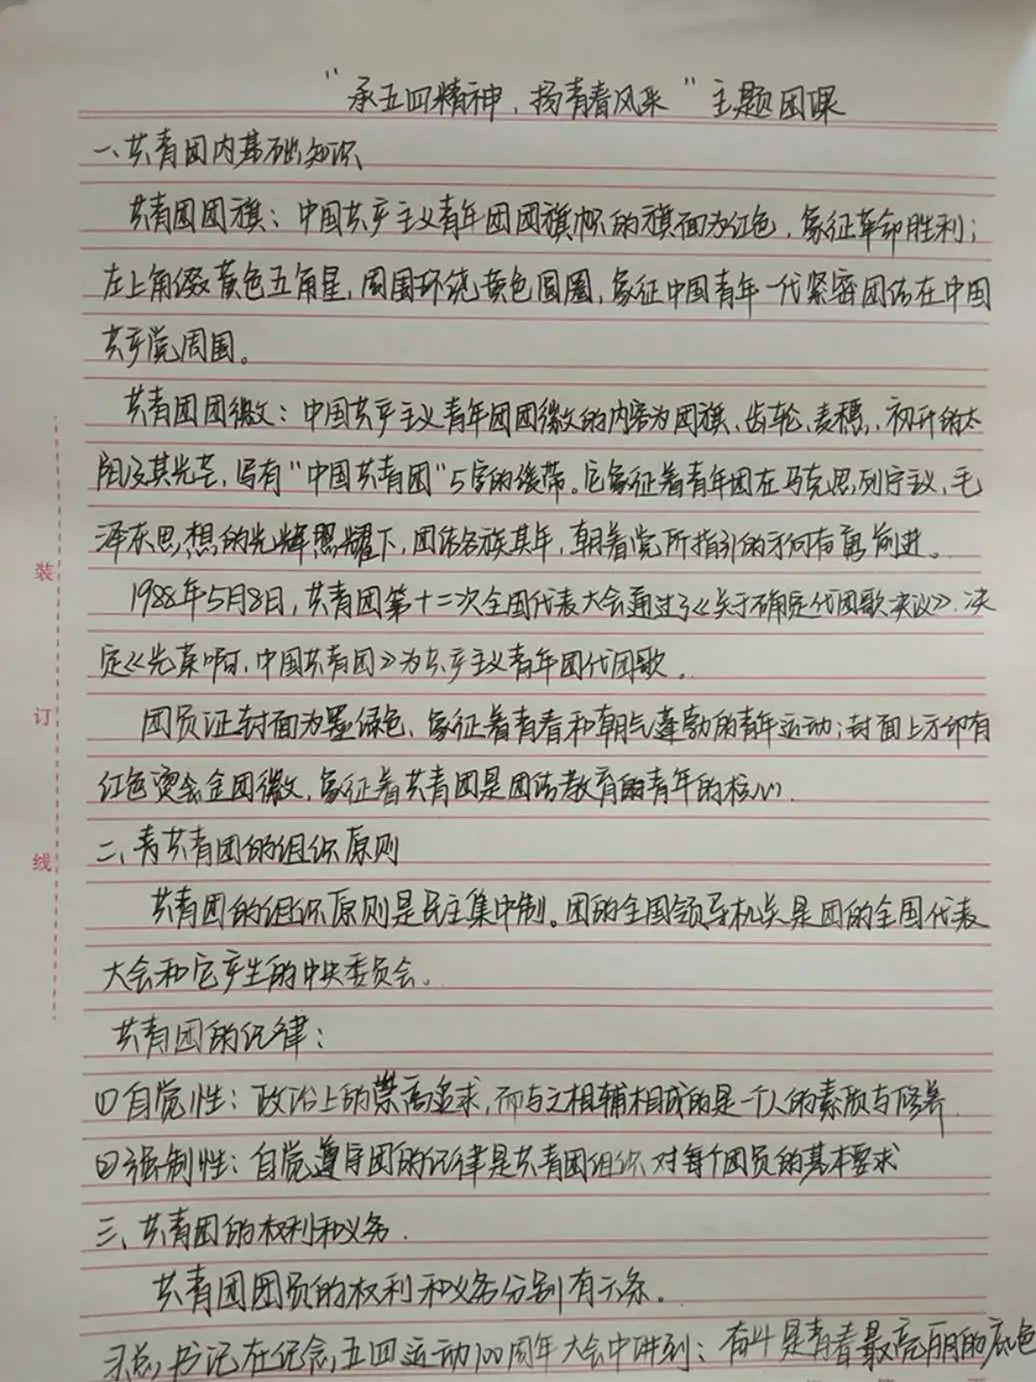 “承五四精神，扬青春风采”主题团课
一、共青团内基础知识
共青团团旗：中国共产主义青年团团旗旗帜的旗面为红色，象征革命胜利；
左上角缀黄色五角星，周围环绕黄色圆圈，象征中国青年一代紧密团结在中国
共产党周围。
共青团团徽：中国共产主义青年团团徽的内容为团旗、齿轮、麦穗、初升的太
阳及其光芒，写有“中国共青团”5字的绶带。它象征着青年团在马克思列宁主义、毛
泽东思想的光辉照耀下，团结各族青年，朝着党所指引的方向奋勇前进。
1988年5月8日，共青团第十二次全国代表大会通过了《关于确定代团歌决议》，决
定《光荣啊，中国共青团》为共产主义青年团代团歌。
团员证封面为墨绿色，象征着青春和朝气蓬勃的青年运动；封面上方印有
红色烫金团徽，象征着共青团是团结教育的青年的核心。
二、青共青团的组织原则
共青团的组织原则是民主集中制。团的全国领导机关是团的全国代表
大会和它产生的中央委员会。
共青团的纪律：
①自觉性：政治上的崇高追求，而与之相辅相成的是一个人的素质与修养
②强制性：自觉遵守团的纪律是共青团组织对每个团员的基本要求
三、共青团的权利和义务.
共青团团员的权利和义务分别有六条。
习总书记在纪念五四运动100周年大会中讲到：奋斗是青春最亮丽的底色
装
订
线